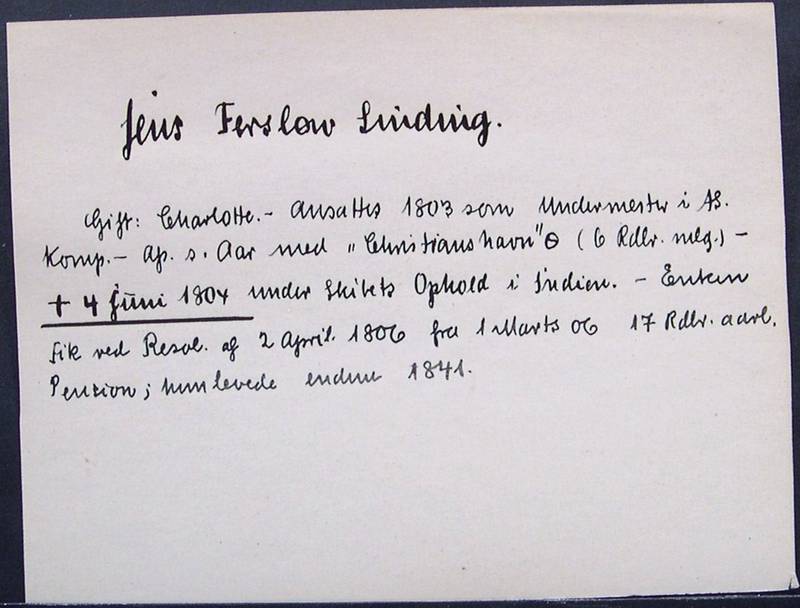 Jens Ferslow Linding.
Gift: Charlotte. - Ansattes 1803 som Undermester i AS.
Komp. - Ap. s. Aar med "Christianshavn" (6 Rdlr. mlg.) -
+ 4 Juni 1804 under Skibets Ophold i Indien. - Enken
fik ved Resol. af 2 April 1806 fra 1 Marts 06 17 Rdlr. aarl.
Pension; hun levede endnu 1841.